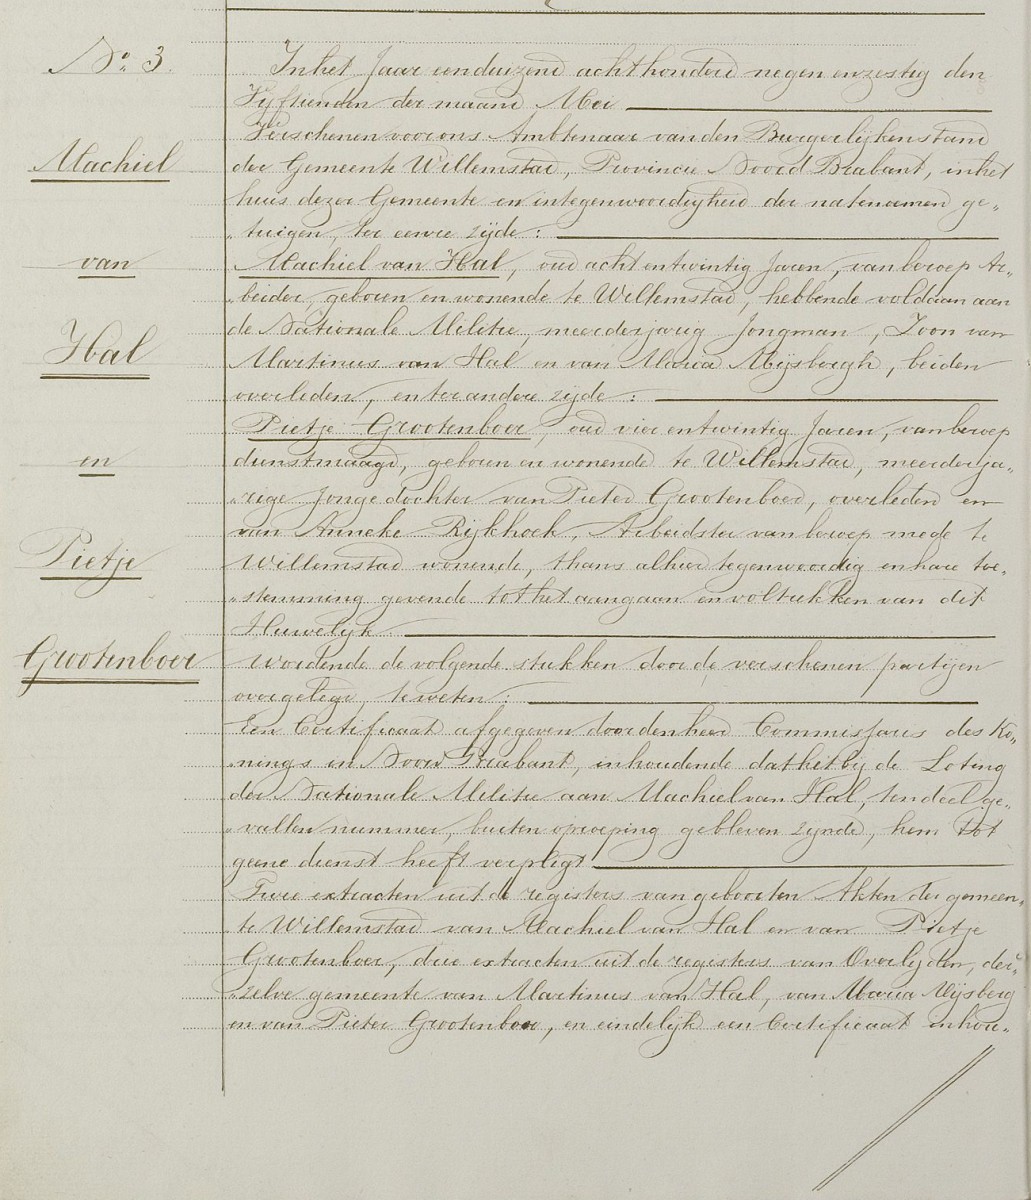 No. 3.
Machiel
van
Hal
en
Pietje
Grootenboer
In het Jaar eenduizend achthonderd negen en zestig den
Vyftienden der maand Mei
Verschenen voor ons Ambtenaar van den Burgerlijken stand
der Gemeente Willemstad, Provincie Noord Brabant, in het
huis dezer Gemeente en in tegenwoordigheid der natenoemen ge„
„tuigen, ter eenre zijde :
Machiel van Hal, oud acht en twintig Jaren, van beroep Ar„
„beider, geboren en wonende te Willemstad, hebbende voldaan aan
de Nationale Militie, meerderjarig Jongman, Zoon van
Martinus van Hal en van Maria Mijsbergh, beiden
overleden, en ter andere zijde :
Pietje Grootenboer, oud vier en twintig Jaren, van beroep
dienstmaagd, geboren en wonende te Willemstad, meerderja„
„rige Jonge dochter van Pieter Grootenboer, overleden en
van Anneke Rijkhoek, Arbeidster van beroep mede te
Willemstad wonende, thans alhier tegenwoordig en hare toe„
„stemming gevende tot het aangaan en voltrekken van dit
Huwelijk.
Wordende de volgende stukken door de verschenen partijen
overgelegd, te weten :
Een Certificaat afgegeven door den heer Commissaris des Ko„
„nings in Noord Brabant, inhoudende dat het bij de Loting
der Nationale Militie aan Machiel van Hal, ten deel ge„
„vallen nummer, buiten oproeping gebleven zijnde, hem tot
geene dienst heeft verpligt
Twee extracten uit de registers van geboorten Akten der gemeen„
„te Willemstad van Machiel van Hal en van Pietje
Grootenboer, drie extracten uit de registers van Overlijden, der„
„zelve gemeente van Martinus van Hal, van Maria Mijsberg
en van Pieter Grootenboer, en eindelijk een Certificaat inhou„